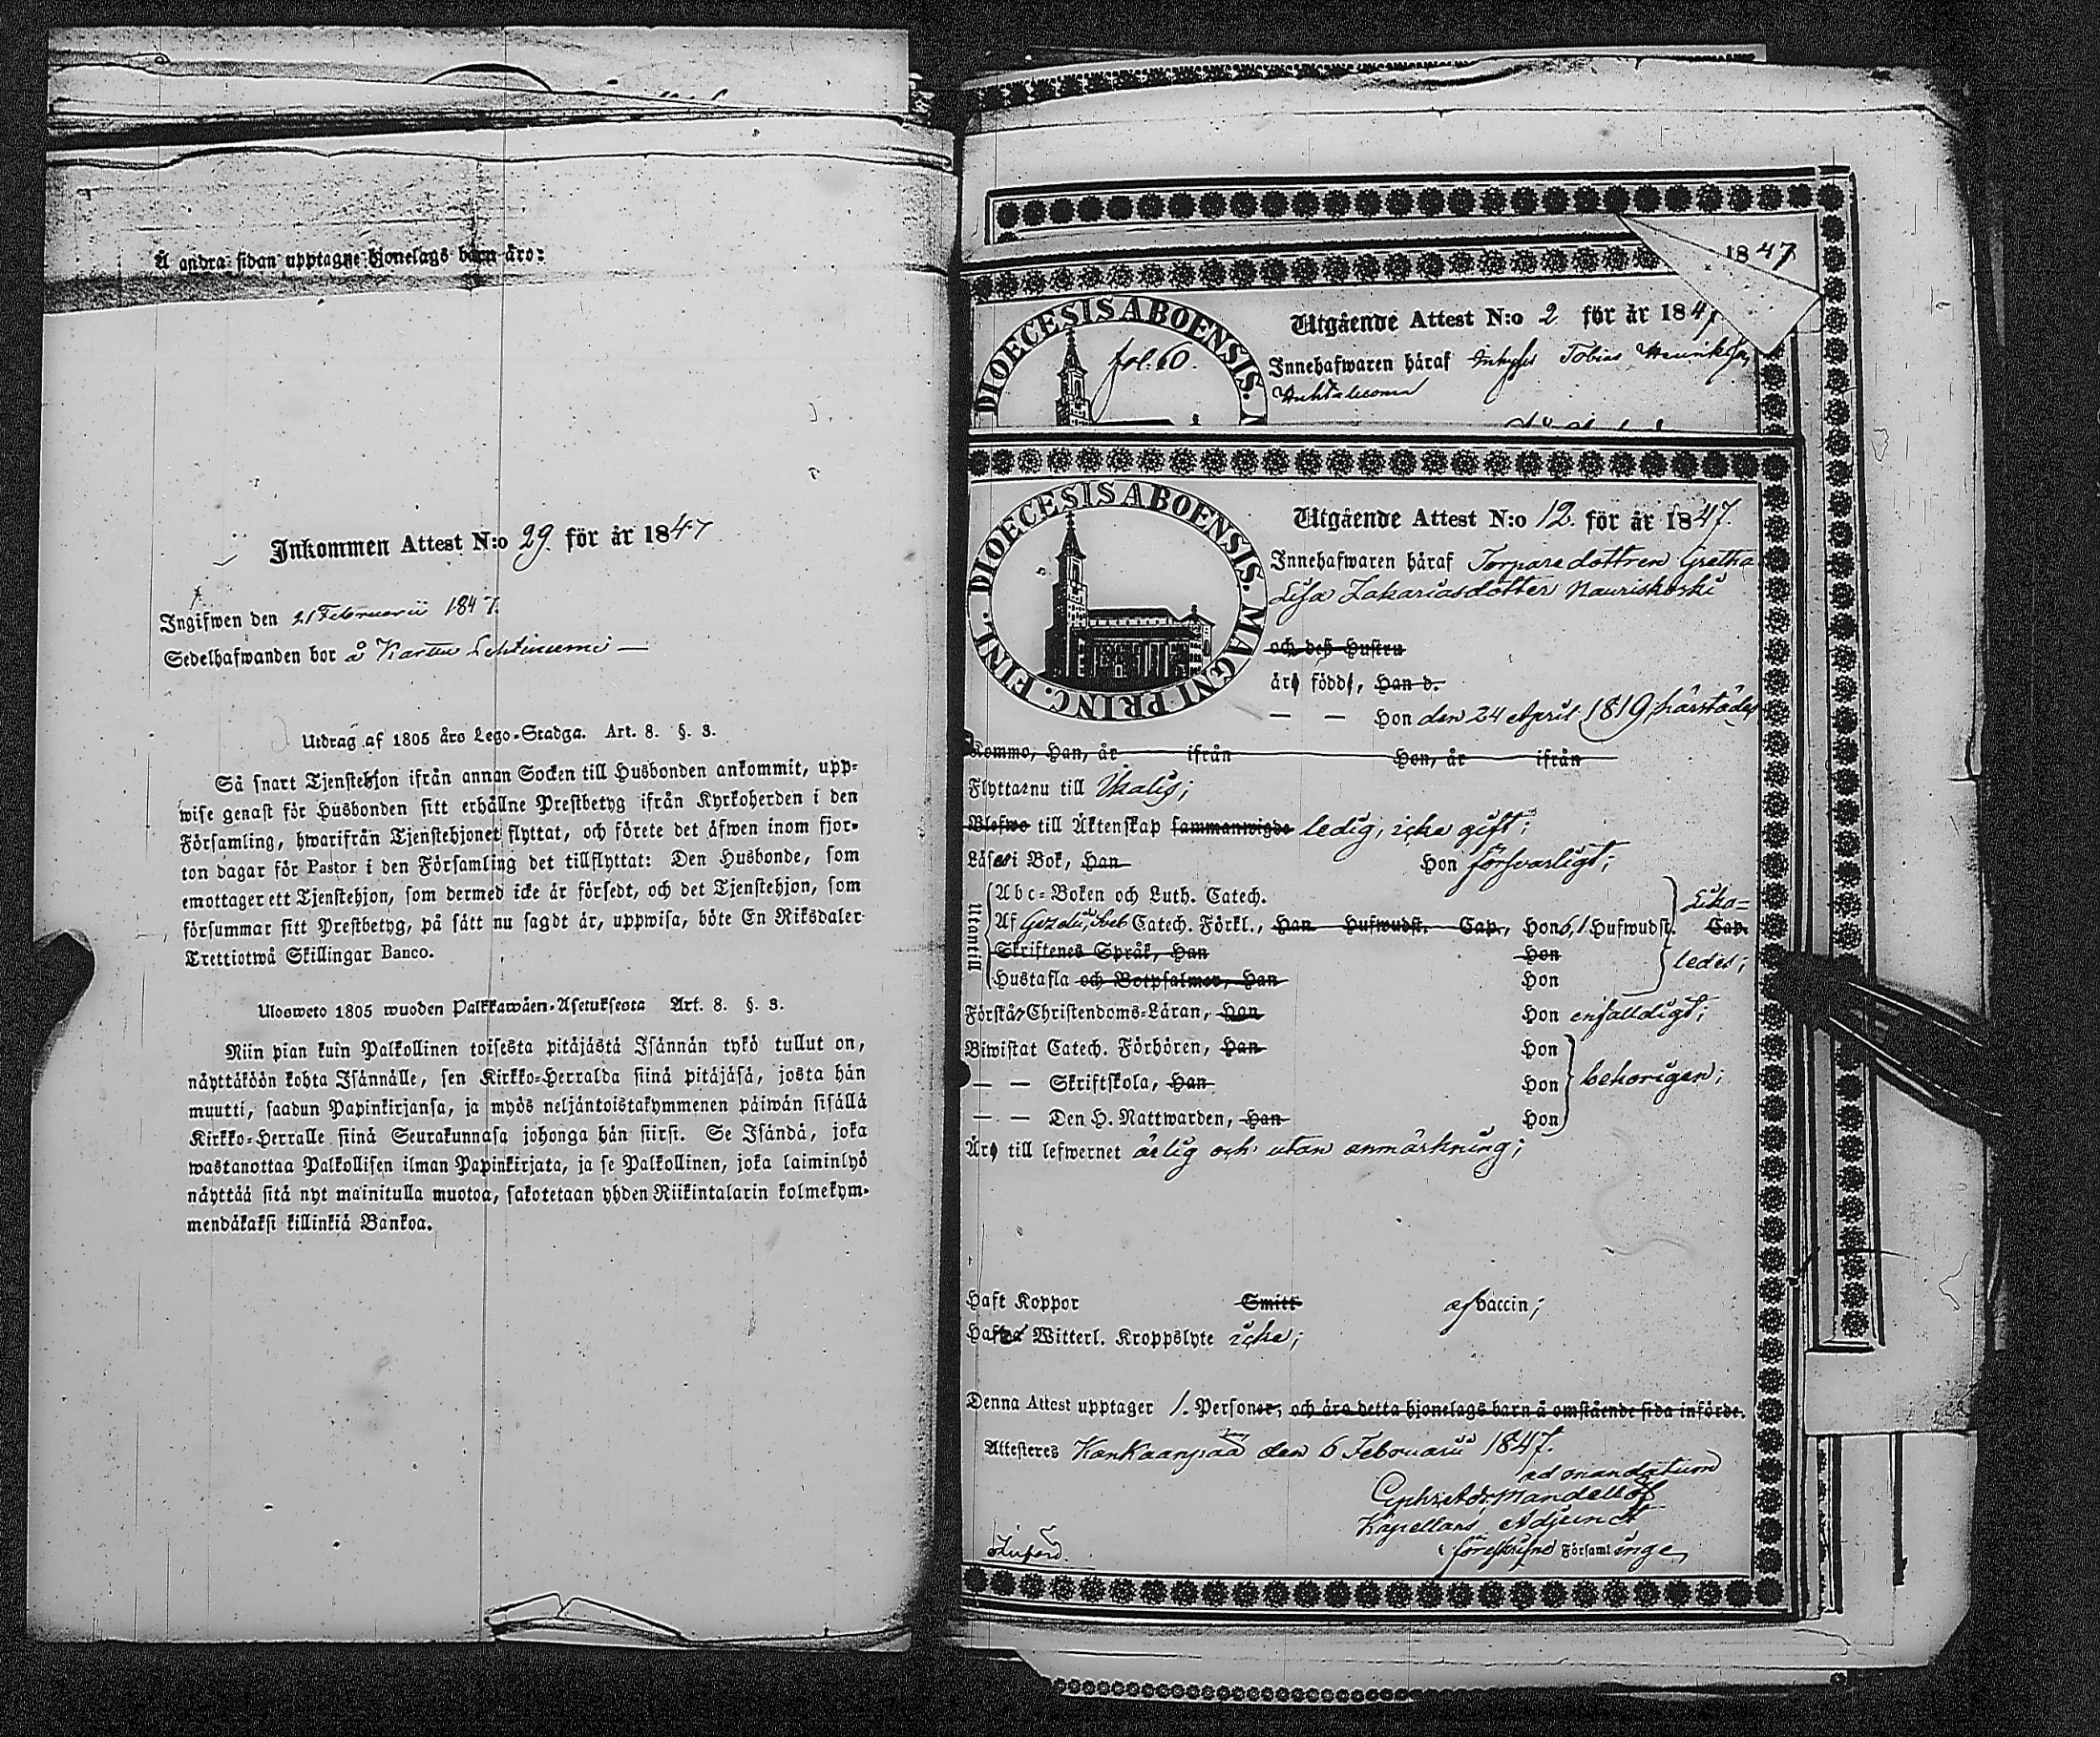 Å andra sidan upptagne Hjonelags barn äro:
Inkommen Attest N:o 29. för år 1847
Ingifwen den 21 Februarii 1847.
Sedelhafwanden bor å Karttu Lehtiniemi —
Utdrag af 1805 års Lego-Stadga. Art. 8. §. 3.
Så snart Tjenstehjon ifrån annan Socken till Husbonden ankommit, upp-
wise genast för Husbonden sitt erhållne Prestbetyg ifrån Kyrkoherden i den
Församling, hwarifrån Tjenstehjonet flyttat, och förete det äfwen inom fjor-
ton dagar för Pastor i den Församling det tillflyttat: Den Husbonde, som
emottager ett Tjenstehjon, som dermed icke är försedt, och det Tjenstehjon, som
försummar sitt Prestbetyg, på sätt nu sagdt är, uppwisa, böte En Riksdaler
Trettiotwå Skillingar Banco.
Ulosweto 1805 wuoden Palkkawäen-Asetuksesta Art. 8. §. 3.
Niin pian kuin Palkollinen toisesta pitäjästä Isännän tykö tullut on,
näyttäköön kohta Isännälle, sen Kirkko-Herralda siinä pitäjäsä, josta hän
muutti, saadun Papinkirjansa, ja myös neljäntoistakymmenen päiwän sisällä
Kirkko-Herralle siinä Seurakunnasa johonga hän siirsi. Se Isändä, joka
wastanottaa Palkollisen ilman Papinkirjata, ja se Palkollinen, joka laiminlyö
näyttää sitä nyt mainitulla muotoa, sakotetaan yhden Riikintalarin kolmekym-
mendäkaksi killinkiä Bankoa.
1847
DIOECESIS ABOENSIS.
fol. 60.
Utgående Attest N:o 2 för år 1847
Innehafwaren häraf Inhyses Tobias
DIOECESIS ABOENSIS. MAGNI PRINC. FINL.
Utgående Attest N:o 12. för år 1847.
Innehafwaren häraf Torparedottren Gretha
Lisa Zakariasdotter Nauriskoski
och dess Hustru
äro födde, Han d.
— — Hon den 24 April 1819, härstädes
Kommo, Han, år ifrån Hon, år ifrån
Flyttar nu till Ikalis;
Blefwo till Äktenskap sammanwigde ledig, icke gift;
Läser i Bok, Han Hon försvarligt;
Utantill
Abc-Boken och Luth. Catech.
Af Catech. Förkl., Han Hufwudst. Cap., Hon 6, 1. Hufwudst. Cap.
Lika-
ledes;
Skriftenes Språk, Han Hon
Hustafla och Botpsalmer, Han Hon
Förstår Christendoms-Läran, Han Hon enfaldigt;
Biwistat Catech. Förhören, Han Hon
— — Skriftskola, Han Hon behörigen;
— — Den H. Nattwarden, Han Hon
Äro till lefwernet ärlig och utan anmärkning;
Haft Koppor Smitt af Vaccin;
Haft Witterl. Kroppslyte icke;
Denna Attest upptager 1. Personer, och äro detta hjonelags barn å omstående sida införde.
Attesteres Kankaanpää den 6 Februarii 1847.
ad mandatum
Mandellöf
Kapellans Adjunct
i föreskrifne Församlinge